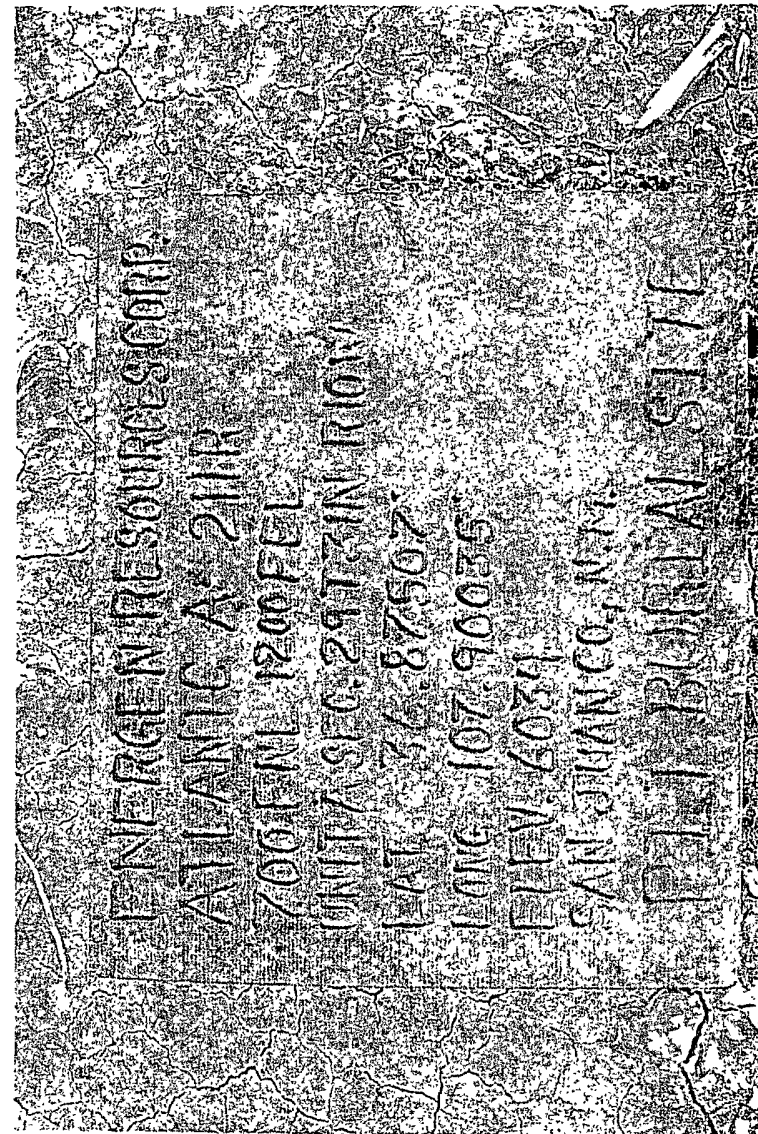 ENERGEN RESOURCES CORP.
ATLANTIC A 211R
700 FNL 1200 FEL
UNIT A SEC. 29 T31N R10W
LAT. 36.87507°
LONG. 107.90035°
ELEV. 6034
SAN JUAN CO., N.M.
PIT BURIAL SITE